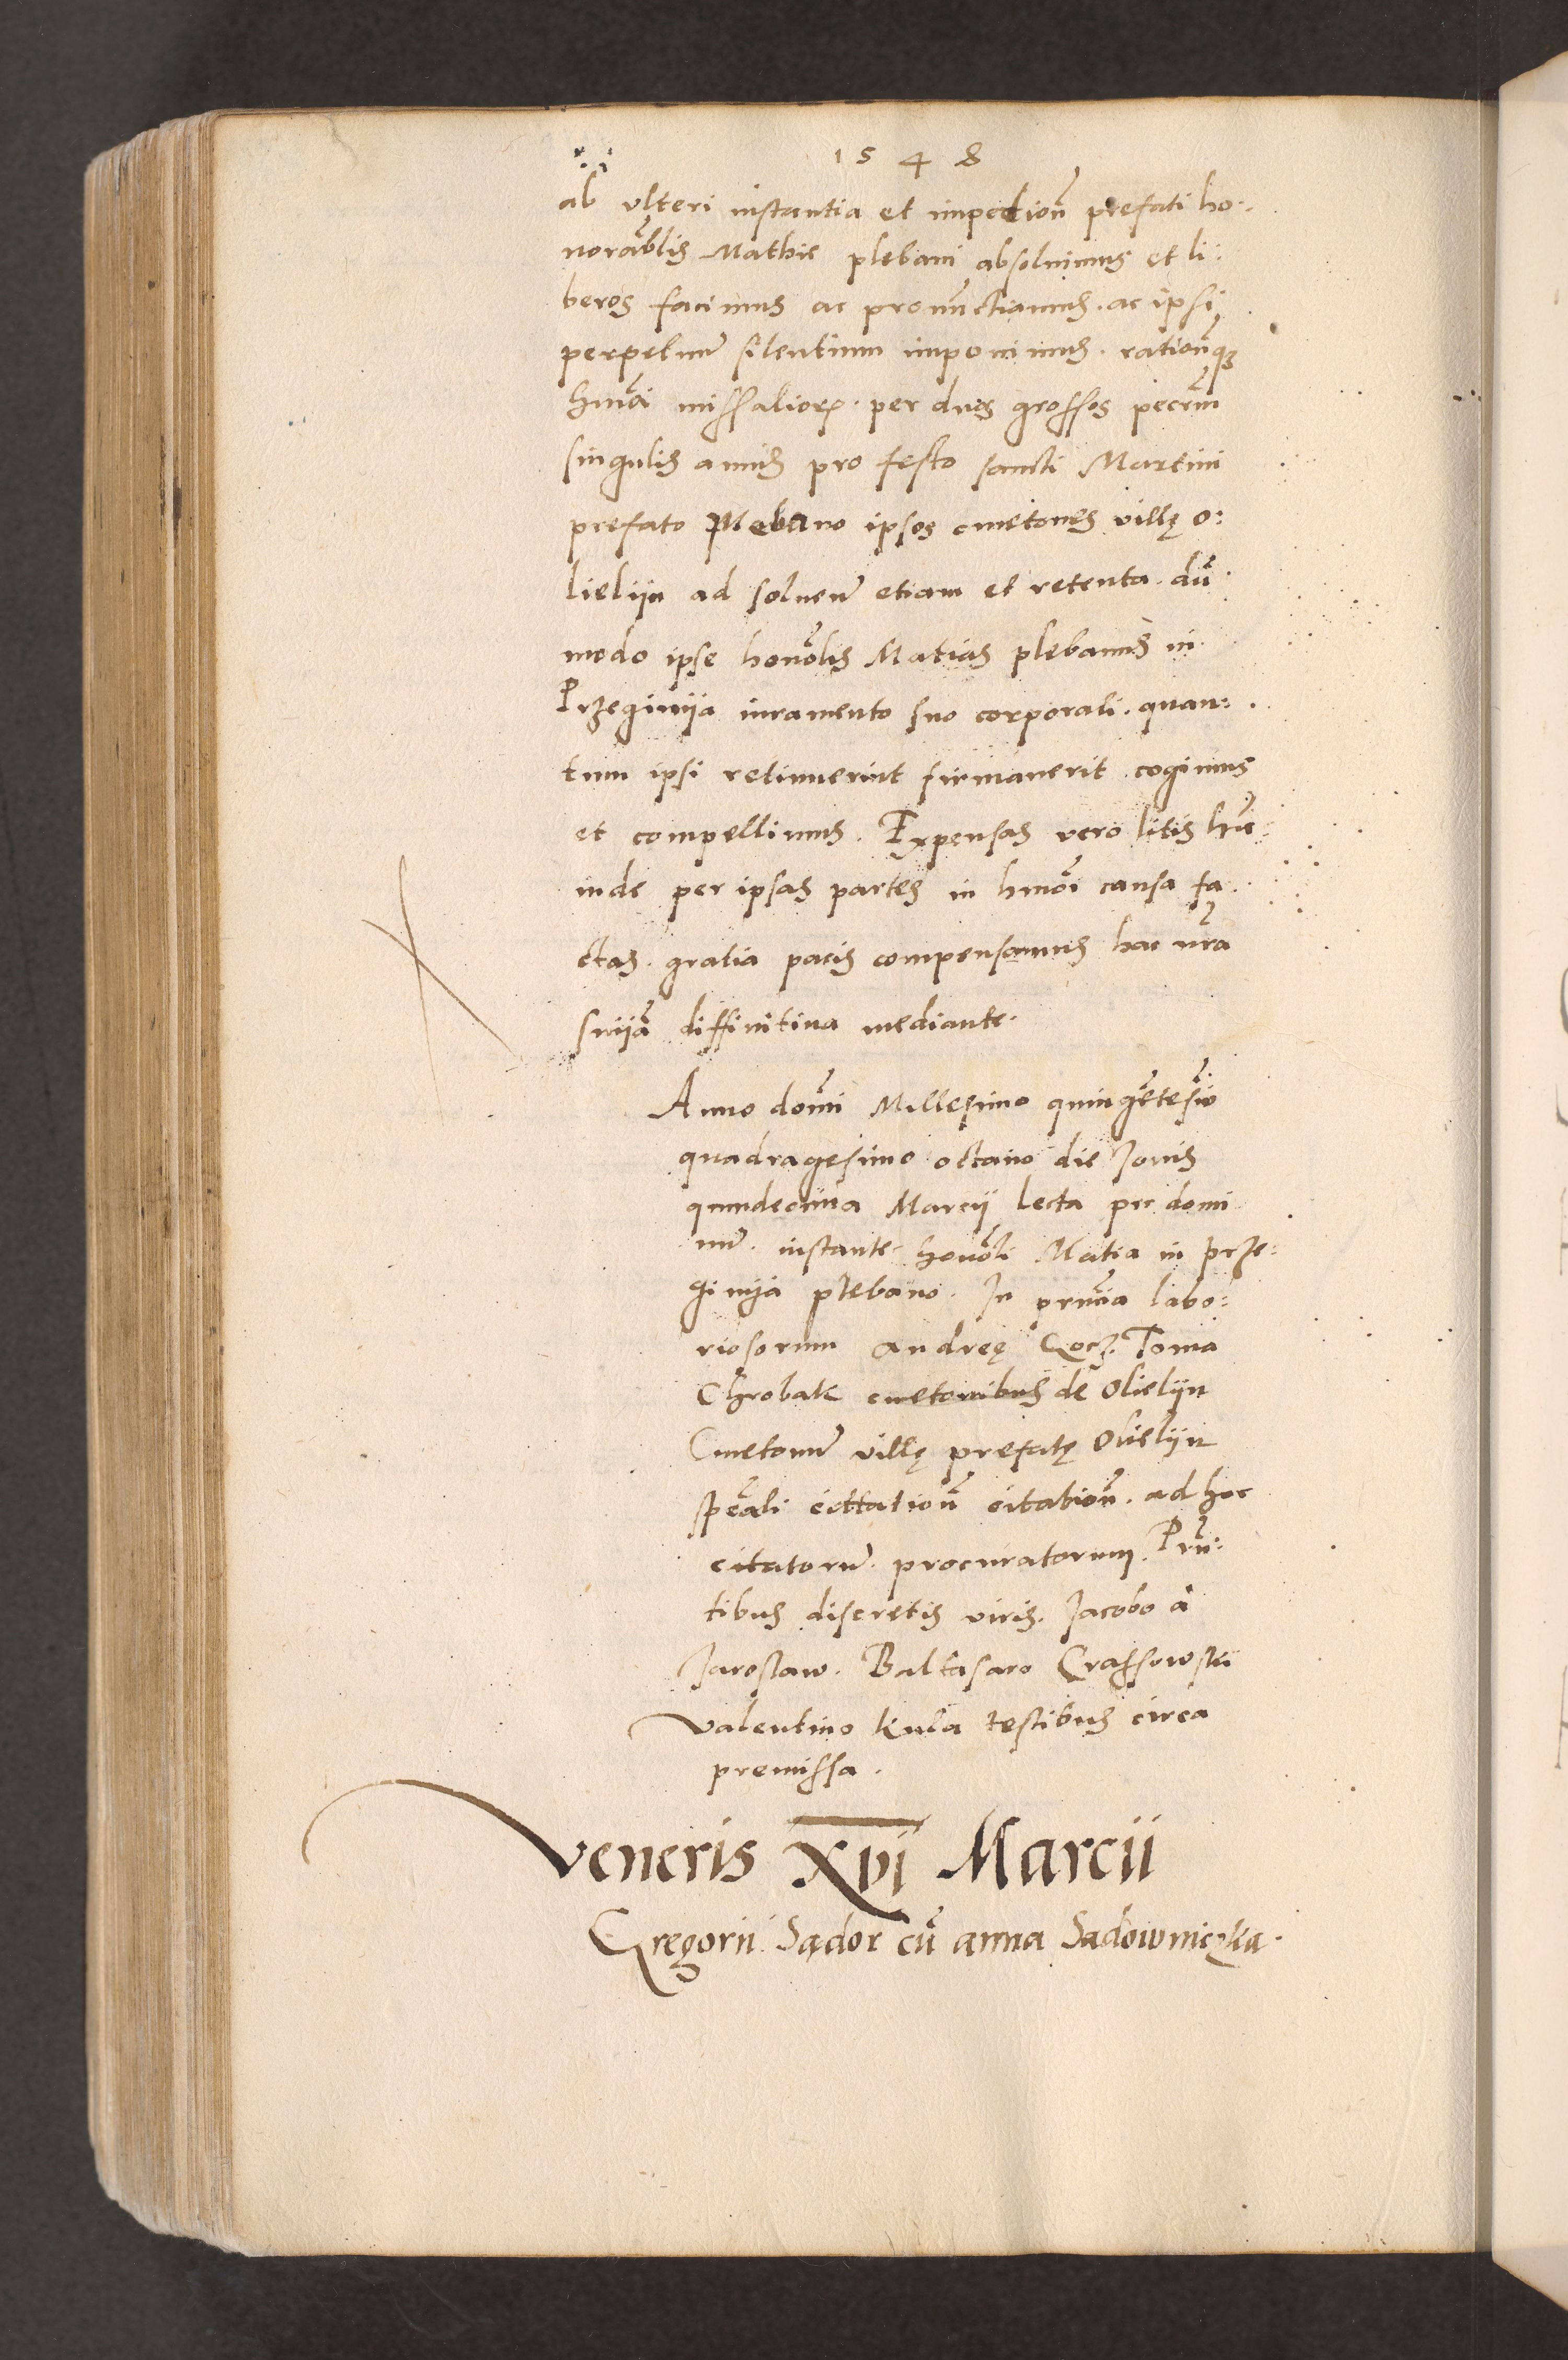 1548
ab ulteri instantia et impedion̄ prefati ho.
norābĺis Mathie plebani absolvimus et li.
beros facimus ac pronunctiamus. ac ipsi
perpetuu͂ silentium imponimus. rationq͂ꝫ
hmōi missalioꝝ. per duos grossos pecun͂
singulis annis pro festo sancti Martini
prefato Plebano ipsos cmetones villę o:
lieliin ad soluen͂ etiam et retenta. dū
modo ipse honōlis Matias plebanus in
Przeginija iuramento suo corporali. quan:
tum ipsi retinuerint firmaverit cogimus
et compellimus. Expensas vero litis hīc
inde per ipsas partes in hmōi causa fa.
ctas. gratia pacis compensamus hac nr͂a
sniiā diffinitiva mediante.
Anno domi͂ Millesimo quingētesi͂o
quadragesimo octavo die Jovis
quindecima Marcij Lecta per domi
nu͂. instante honōli Matia in prze:
ginija plebano. In prn͂cia labo:
riosorum andreę Toma
Chrobak cmetonibus de Olieliin
Cmetonu͂ villę prefatę Olieliin
spēali cittation͂ citation͂. ad hoc
citatoru͂. procuratorum. Prn͂:
tibus discretis viris. Jacobo a
Jaroslaw. Baltasaro Crassowski
valentino kula testibus circa
premissa.
Veneris xvi Marcii
Gregorii Sądor cū anna Sadowniczka.